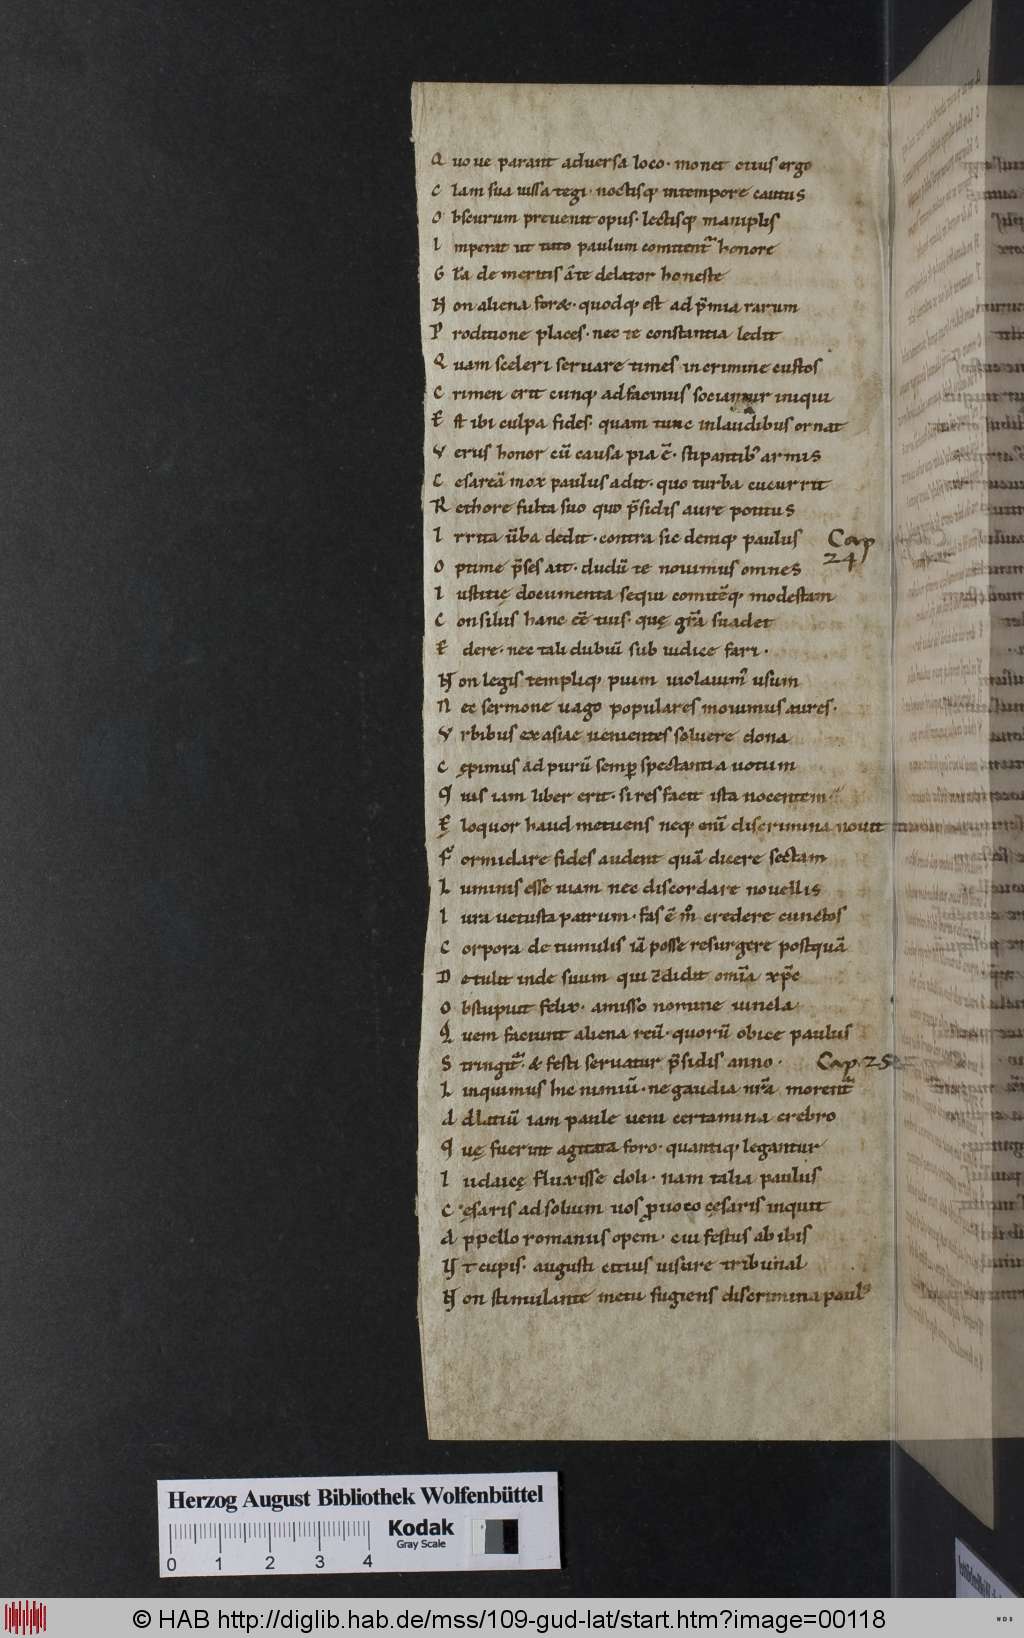 Q uo ue parant aduersa loco· monet cuius ergo
C lam sua iussa tegi· noctisq; intempore cautus
O bscurum preuenit opus· lectisq; maniplis
I mperat ut tuto paulum comitent᷑ honore
G r̄a de meritis ā te delator honeste
N on aliena foret· quodq; est ad p̄mia rarum
P roditione places· nec te constantia ledit
Q uam sceleri seruare times in crimine custos
C rimen erit cunq; ad facinus sociantur iniqui
E st ibi culpa fides· quam tunc inlaudibus ornat
V erus honor cū causa pia ē· stipantib; armis
C esareā mox paulus adit· quo turba cucurrit
R ethore fulta suo quo p̄sidis aure potitus
I rrita ūba dedit· contra sic deniq; paulus Cap
24
O ptime p̄ses ait· dudū te nouimus omnes
I ustitię documenta sequi comitēq; modestam
C onsiliis hanc cē tuis· quę gr̄a suadet
E dere· nec tali dubiū sub iudice fari·
N on legis templiq; pium uiolauim᷒ usum
N ec sermone uago populares mouimus aures·
V rbibus ex asiae uenientes soluere dona
C ępimus ad purū semp spectantia uotum
Q uis iam liber erit· si res facit ista nocentem
E loquor haud metuens neq; enī discrimina nouit
F ormidare fides audent quā dicere sectam
L uminis esse uiam nec discordare nouellis
I ura uetusta patrum· fas ē m̊ credere cunctos
C orpora de tumulis iā posse resurgere postquā
D etulit inde suum qui ꝯdidit om̄ia xp̄c
O bstupuit felix· amisso nomine uincla
Q uem faciunt aliena reū· quorū obice paulus
S tringit᷑· & festi seruatur p̄sidis anno· Cap. 25
L inquimus hic nimiū· ne gaudia nr̄a morent᷑
A d latiū iam paule ueni certamina crebro
Q uę fuerint agitata foro· quantiq; legantur
I udaicę fluxisse doli· nam talia paulus
C ęsaris ad solium uos ꝓuoco cęsaris inquit
A ppello romanus opem· cui festus abibis
U t cupis· augusti citius uisure tribunal
N on stimulante metu fugiens discrimina paul᷒
Herzog August Bibliothek Wolfenbüttel
0 1 2 3 4
Kodak
Gray Scale
© HAB http://diglib.hab.de/mss/109-gud-lat/start.htm?image=00118